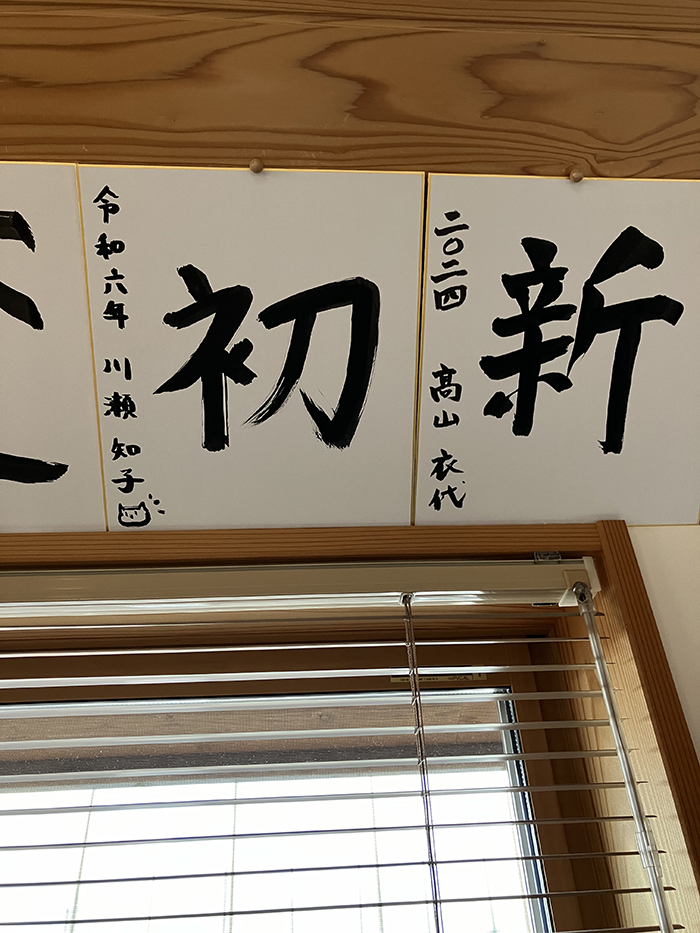 新
二〇二四 高山 衣代
初
令和六年 川瀬 知子